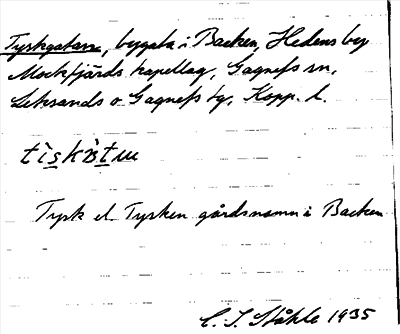 Tyskgatan, bygata i Backen, Hedens by
Mockfjärds kapellag, Gagnefs sn,
Leksands o Gagnefs tg, Kopp. l.
Tysk el. Tysken gårdsnamn i Backen
C. I. Ståhle 1935